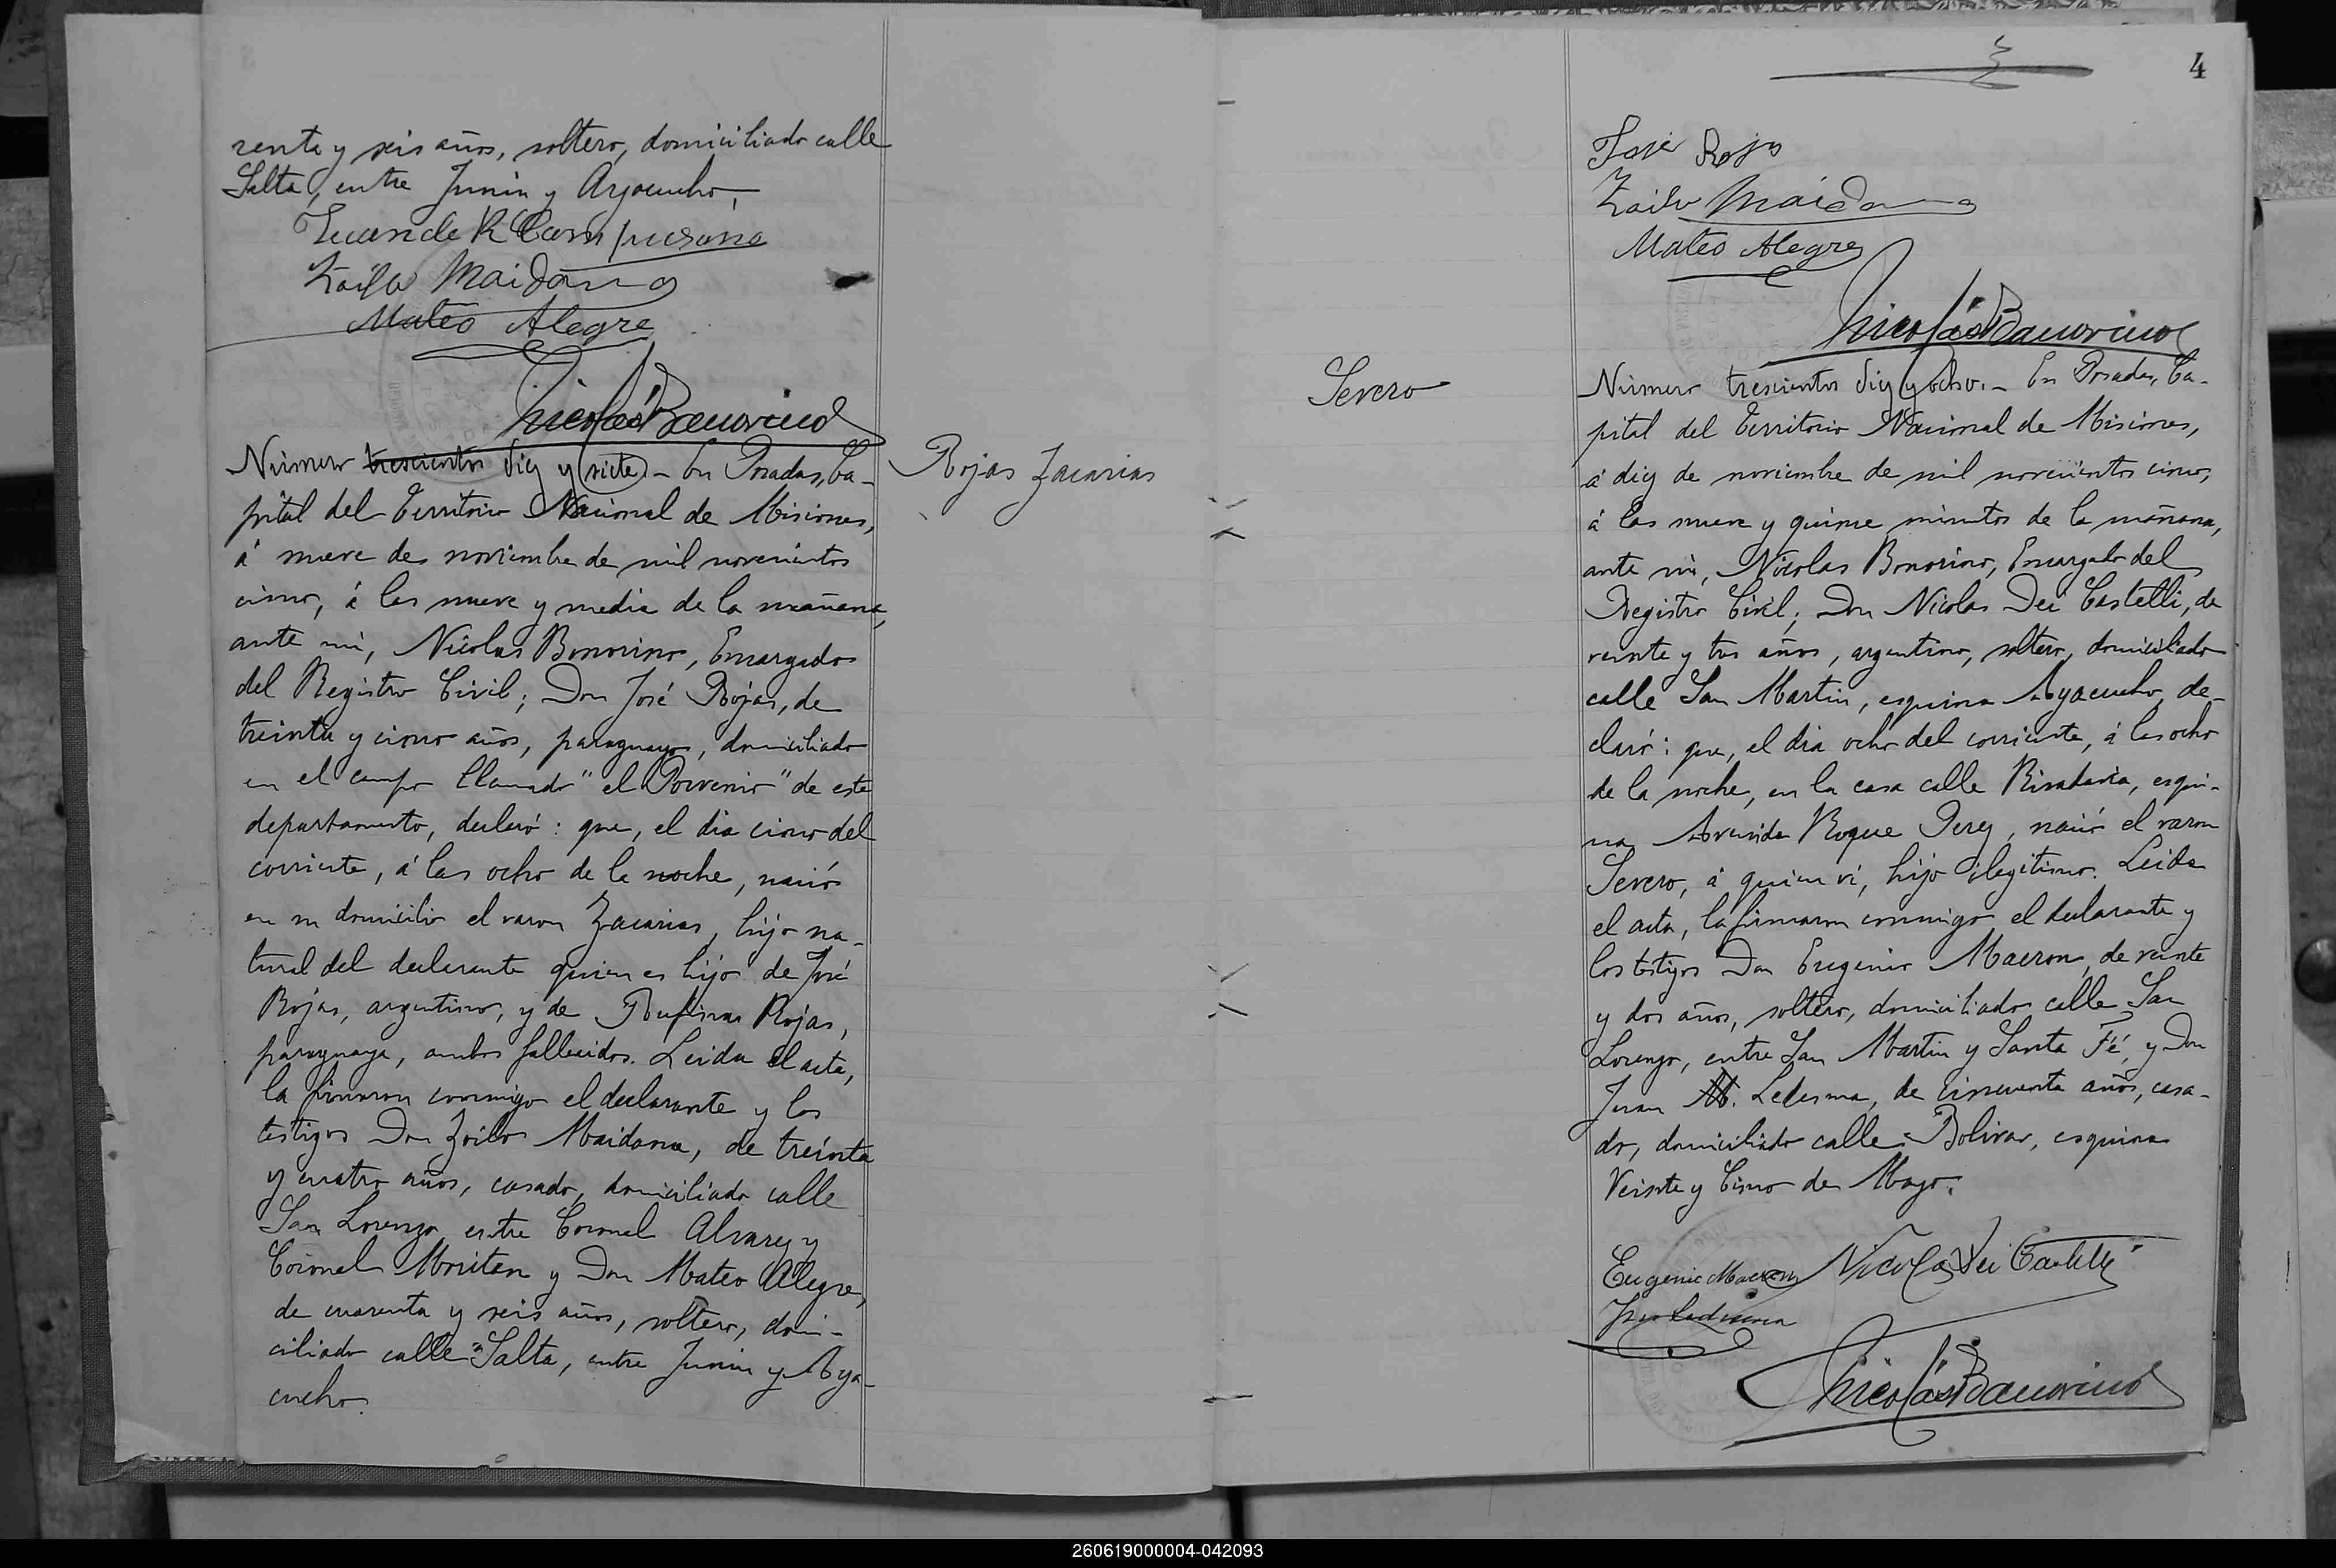 renta y seis años, soltero, domiciliado calle
Salta, entre Junin y Ayacucho,
Juan de R Campuzano
Zoilo Maidana
Mateo Alegre
Nicolás Bonorino
Número trescientos diez y siete - En Posadas, Ca-
pital del Territorio Nacional de Misiones,
á nueve de noviembre de mil novecientos
cinco, á las nueve y media de la mañana,
ante mí, Nicolas Bonorino, Encargado
del Registro Civil; Don José Rojas, de
treinta y cinco años, paraguayo, domiciliado
en el campo llamado "el Porvenir" de este
departamento, declaró: que, el dia cinco del
corriente, á las ocho de la noche, nació
en su domicilio el varon Zacarias, hijo na-
tural del declarante quien es hijo de José
Rojas, argentino, y de Rufina Rojas,
paraguaya, ambos fallecidos. Leida el acta,
la firmaron conmigo el declarante y los
testigos Don Zoilo Maidana, de treinta
y cuatro años, casado, domiciliado calle
San Lorenzo entre Coronel Alvarez y
Coronel Moritan y Don Mateo Alegre,
de cuarenta y seis años, soltero, domi-
ciliado calle Salta, entre Junin y Aya-
cucho.
Rojas Zacarias
4
José Rojas
Zoilo Maidana
Mateo Alegre
Nicolás Bonorino
Severo
Número trescientos diez y ocho. - En Posadas, Ca-
pital del Territorio Nacional de Misiones,
á diez de noviembre de mil novecientos cinco,
á las nueve y quince minutos de la mañana,
ante mí, Nicolas Bonorino, Encargado del
Registro Civil; Don Nicolas Dei Castelli, de
veinte y tres años, argentino, soltero, domiciliado
calle San Martin, esquina Ayacucho, de-
claró: que, el dia ocho del corriente, á las ocho
de la noche, en la casa calle Rivadavia, esqui-
na Avenida Roque Perez, nació el varon
Severo, á quien ví, hijo ilegitimo. Leida
el acta, la firmaron conmigo el declarante y
los testigos Don Eugenio Maeron, de veinte
y dos años, soltero, domiciliado calle San
Lorenzo, entre San Martin y Santa Fé, y Don
Juan M. Ledesma, de cincuenta años, casa-
do, domiciliado calle Bolivar, esquina
Veinte y Cinco de Mayo.
Eugenio Maeron Nicolas Dei Castelli
Juan Ledesma
Nicolás Bonorino
260619000004-042093